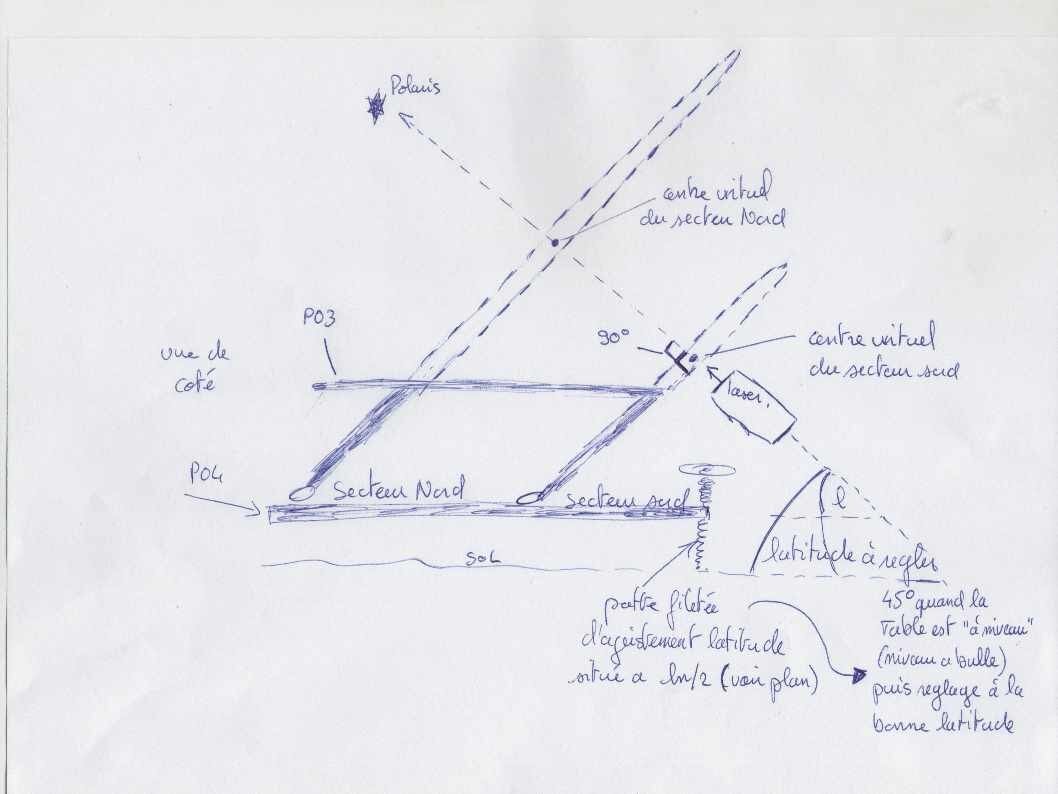 Polaris
centre virtuel
du secteur Nord
P03
vue de
coté
90°
centre virtuel
du secteur sud
laser.
P04
Secteur Nord
secteur sud
l
latitude à regler
SOL
patte filetée
d'ajustement latitude
située a ln/2 (voir plan)
45° quand la
Table est "à niveau"
(niveau a bulle)
puis reglage à la
bonne latitude